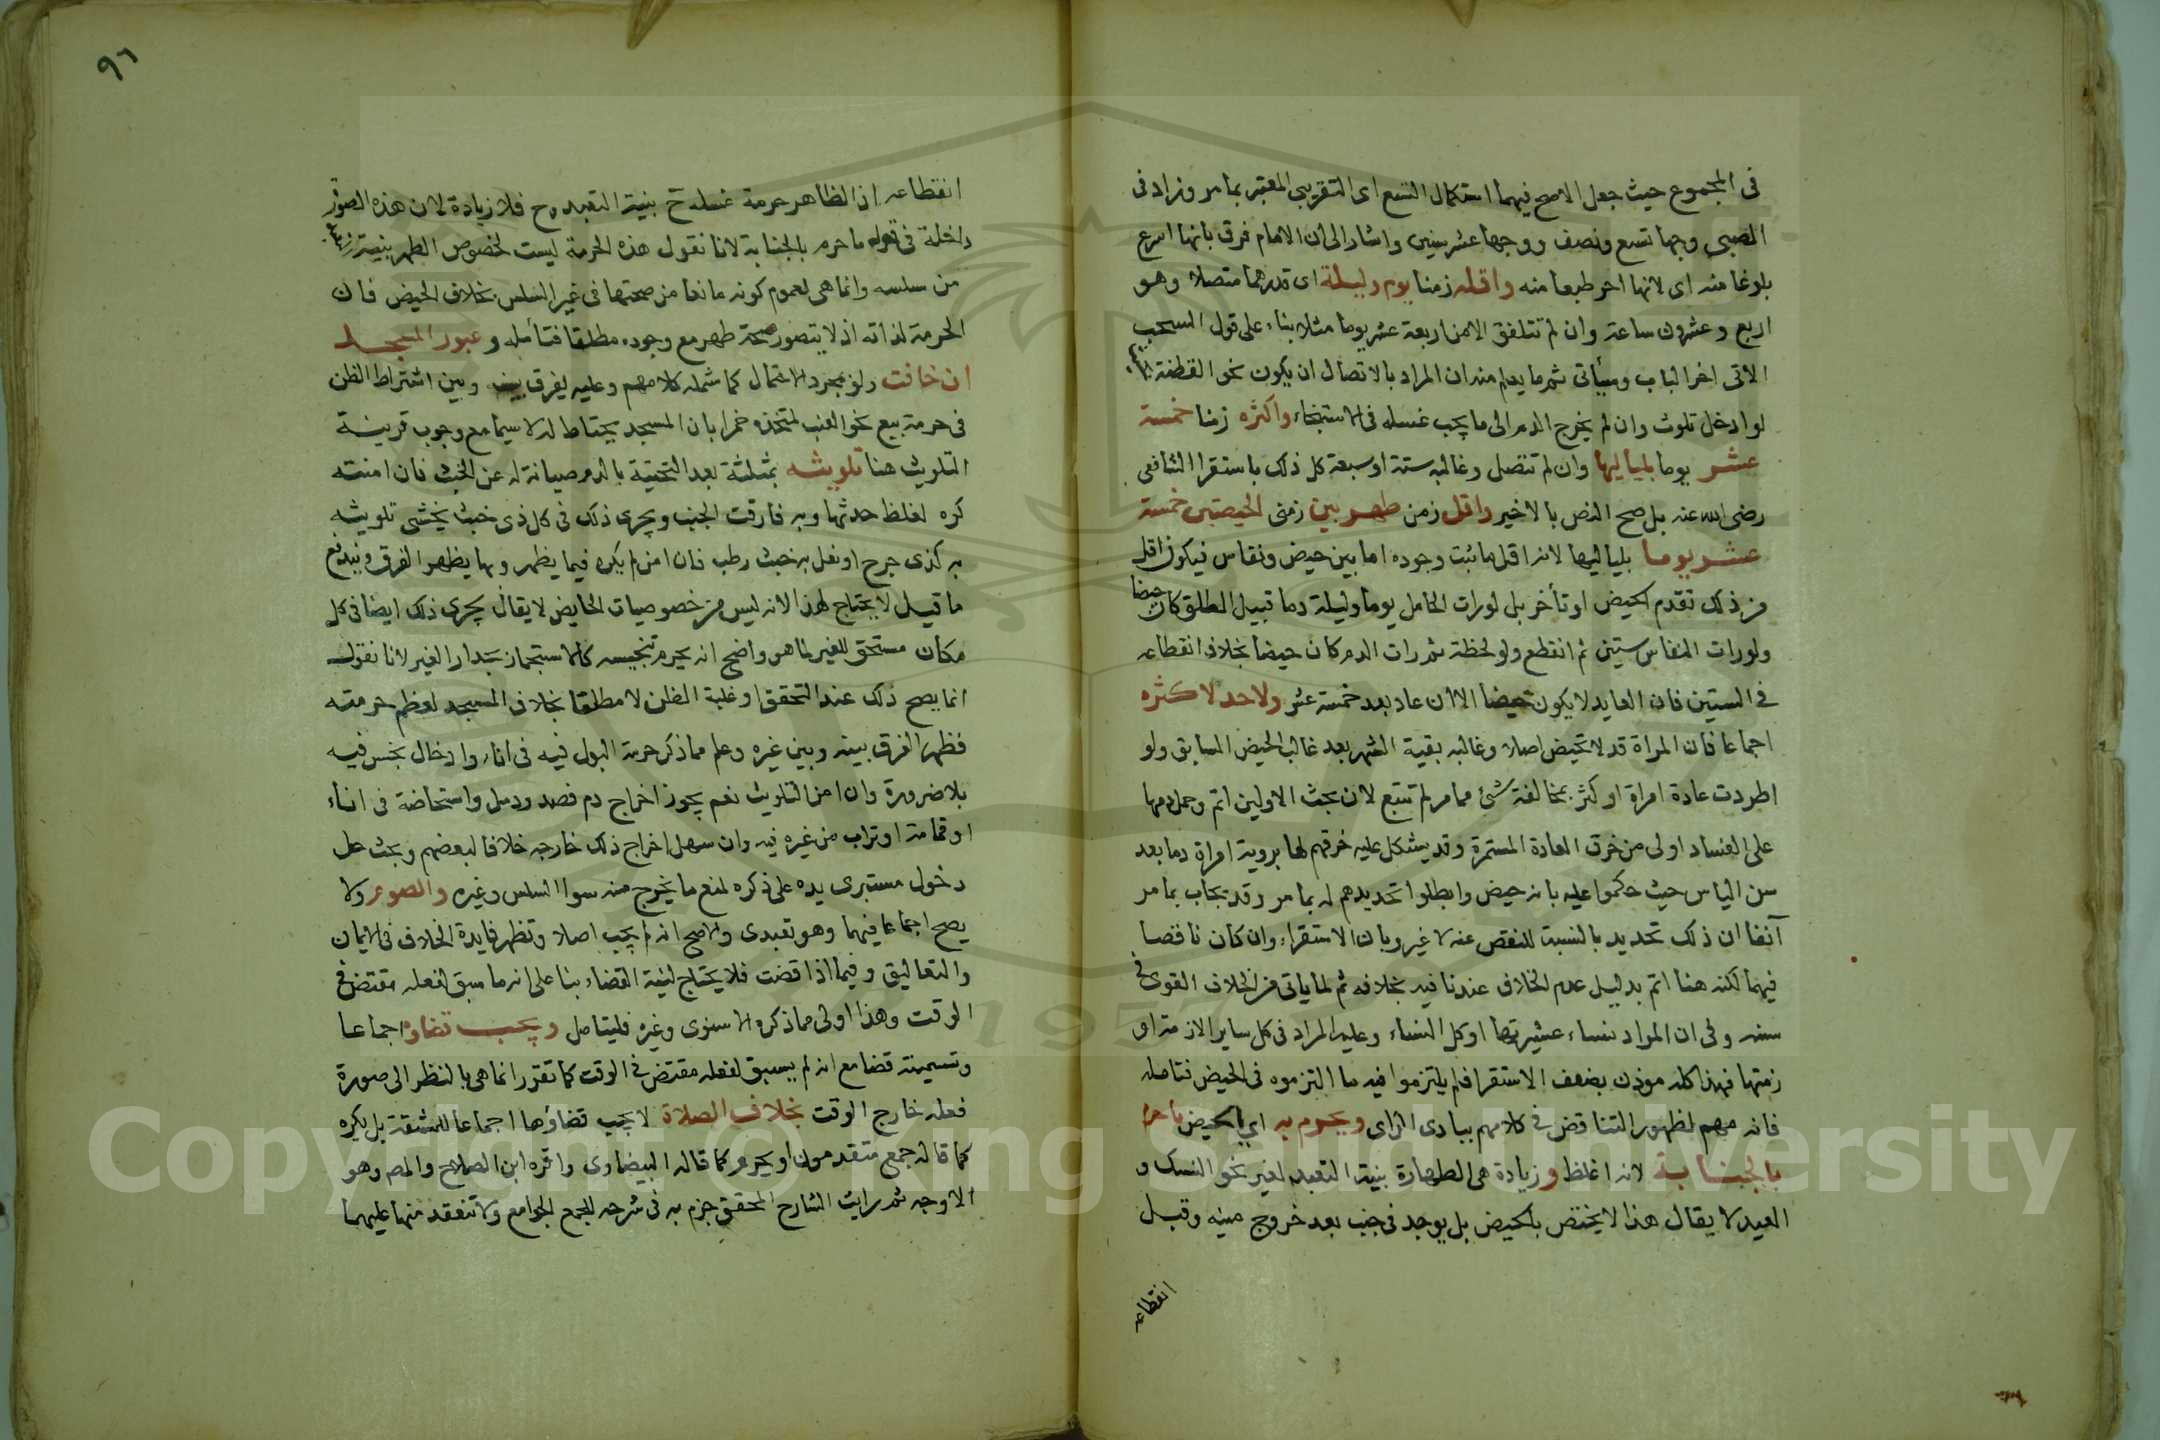 في المجموع حيث جعل الاصح فيهما استكمال التسع اى التقريبى المعتبر بما مر وزاد فى
الصبى وجها تسع ونصف ووجها عشر سنين واشار الى ان الامام فرق بانها اسرع
بلوغا منه اى لانها احر طبعا منه واقله زمنا يوم وليلة اى قدرهما متصلا وهو
اربع وعشرون ساعة وان لم تتلفق الا من اربعة عشر يوما مثلا بناء على قول السحب
الاتى اخر الباب وسيأتى ثم ما يعلم منه ان المراد بالاتصال ان يكون نحو القطنة بحيث
لو ادخل تلوث وان لم يخرج الدم الى ما يجب غسله فى الاستنجاء واكثره زمنا خمسة
عشر يوما بلياليها وان لم تتصل وغالبه ستة او سبعة كل ذلك باستقرا الشافعى
رضى الله عنه بل صح النص بالاخير واقل زمن طهر بين زمنى الحيضتين خمسة
عشر يوما بلياليها لانه اقل ما ثبت وجوده اما بين حيض ونفاس فيكون اقل
من ذلك تقدم الحيض او تأخر بل لو رات الحامل يوما وليلة دما قبيل الطلق كان حيضا
ولو رات النفاس ستين ثم انقطع ولو لحظة ثم رات الدم كان حيضا بخلاف انقطاعه
فى الستين فان العايد لا يكون حيضا الا ان عاد بعد خمسة عشر ولا حد لاكثره
اجماعا فان المراة قد لا تحيض اصلا وغالبه بقية الشهر بعد غالب الحيض السابق ولو
اطردت عادة امراة او كثر بمخالفة شئ مما مر لم تتبع لان بحث الاولين اتم وحمل دمها
على الفساد اولى من خرق العادة المستمرة وقد يشكل عليه خرقهم لها بروية امراة دما بعد
سن الياس حيث حكموا عليه بانه حيض وابطلوا تحديدهم له بما مر وقد يجاب بما مر
آنفا ان ذلك تحديد بالنسبة للنقص عنه لا غير وبان الاستقراء وان كان ناقصا
فيهما لكنه هنا اتم بدليل عدم الخلاف عندنا فيه بخلافه ثم لما ياتى من الخلاف القوى فى
سنه وفى ان المراد نساء عشيرتها او كل النساء وعليه المراد فى كل ساير الازمنة او
زمنها فهذا كله موذن بضعف الاستقرا فلم يلتزموا فيه ما التزموه فى الحيض فتامله
فانه مهم لظهور التناقض فى كلامهم ببادى الراى ويحرم به اي بالحيض ما حرم
بالجنابة لانه اغلظ و زيادة هى الطهارة بنية التعبد لغير نحو النسك و
العيد لا يقال هذا لا يختص بالحيض بل يوجد فى جنب بعد خروج منيه وقبل
انقطاعه
٩٦
انقطاعه اذ الظاهر حرمة غسله ح بنية التعبد وح فلا زيادة لان هذه الصورة
داخلة فى قوله ما حرم بالجنابة لانا نقول هذه الحرمة ليست لخصوص الطهر بنيته
من سلسه وانما هى لعموم كونه مانعا من صحتها فى غير السلس بخلاف الحيض فان
الحرمة لذاته اذ لا يتصور صحة طهر مع وجوده مطلقا فتأمله وعبور المسجد
ان خافت ولو بمجرد الاحتمال كما شمله كلامهم وعليه يفرق بينه وبين اشتراط الظن
فى حرمة بيع نحو العنب لمتخذه خمرا بان المسجد يحتاط له لا سيما مع وجوب قرينة
التلويث هنا تلويثه بمثلثة بعد التحتية بالدم صيانة له عن الخبث فان امنته
كره لغلظ حدثها وبه فارقت الجنب ويجرى ذلك فى كل ذى خبث يخشى تلويثه
به كذى جرح او نعل به خبث رطب فان امن لم يكره فيما يظهر وبها يظهر الفرق ويندفع
ما قيل لا يحتاج لهذا لانه ليس من خصوصيات الحايض لا يقال يجرى ذلك ايضا فى كل
مكان مستحق للغير لما هو واضح انه يحرم تنجيسه كالاستجمار بجدار الغير لانا نقول
انما يصح ذلك عند التحقق او غلبة الظن لا مطلقا بخلاف المسجد لعظم حرمته
فظهر الفرق بينه وبين غيره وعلم مما ذكر حرمة البول فيه فى اناء وادخال نجس فيه
بلا ضرورة وان امن التلويث نعم يجوز اخراج دم فصد ودمل واستحاضة فى اناء
او قمامة او تراب من غيره فيه وان سهل اخراج ذلك خارجه خلافا لبعضهم وبحث حل
دخول مستبرى يده على ذكره لمنع ما يخرج منه سوا السلس وغيره والصوم ولا
يصح اجماعا فيهما وهو تعبدى والاصح انه لم يجب اصلا وتظهر فايدة الخلاف فى الايمان
والتعاليق وفيما اذا قضت فلا يحتاج لنية القضاء بنا على انه ما سبق لفعله مقتض فى
الوقت وهذا اولى مما ذكره الاسنوى وغيره فليتامل ويجب قضاوه اجماعا
وتسميته قضا مع انه لم يسبق لفعله مقتض فى الوقت كما تقرر انما هى بالنظر الى صورة
فعله خارج الوقت بخلاف الصلاة لا يجب قضاؤها اجماعا للمشقة بل يكره
كما قاله جمع متقدمون او يحرم كما قاله البيضاوى واقره ابن الصلاح والمصنف وهو
الاوجه ثم رايت الشارح المحقق جزم به فى شرحه لجمع الجوامع ولا تنعقد منها عليهما
Copyright © King Saud University